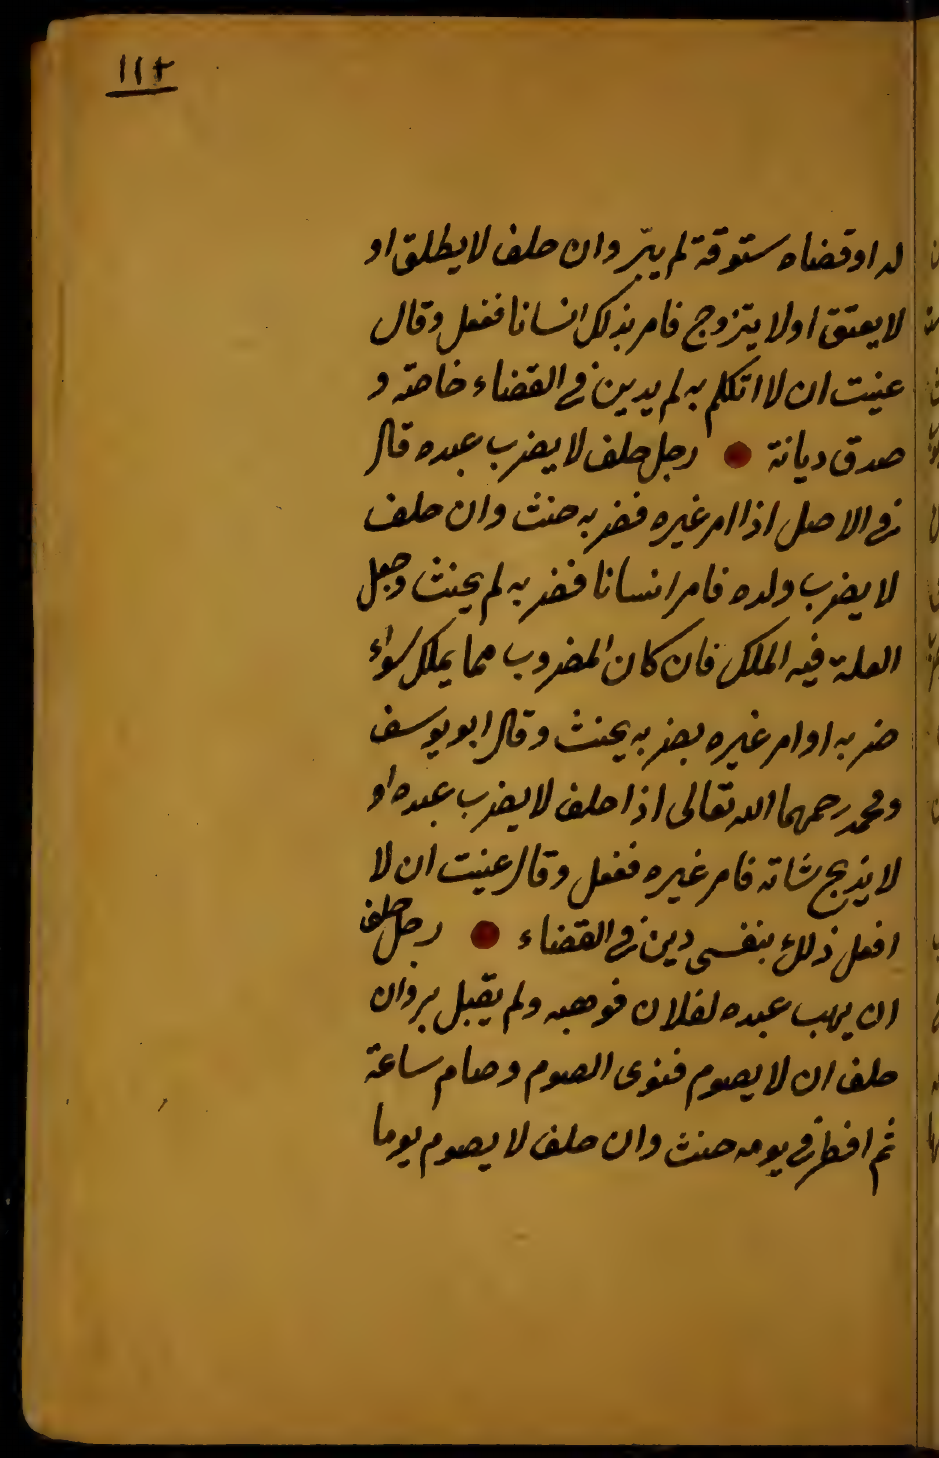 ١١٢
له او قضاه ستوقة لم يبرّ وان حلف لا يطلق او
لا يعتق او لا يتزوج فامر بذلك انسانا ففعل وقال
عنيت ان لا اتكلم به لم يدين في القضاء خاصة و
صدق ديانة رجل حلف لا يضرب عبده قال
في الاصل اذا امر غيره فضربه حنث وان حلف
لا يضرب ولده فامر انسانا فضربه لم يحنث وجعل
العلة فيه الملك فان كان المضروب مما يملك سواء
ضربه او امر غيره بضربه يحنث وقال ابو يوسف
ومحمد رحمهما الله تعالى اذا حلف لا يضرب عبده او
لا يذبح شاته فامر غيره ففعل وقال عنيت ان لا
افعل ذلك بنفسى دين في القضاء رجل حلف
ان يهب عبده لفلان فوهبه ولم يقبل بر وان
حلف ان لا يصوم فنوى الصوم وصام ساعة
ثم افطر في يومه حنث وان حلف لا يصوم يوما